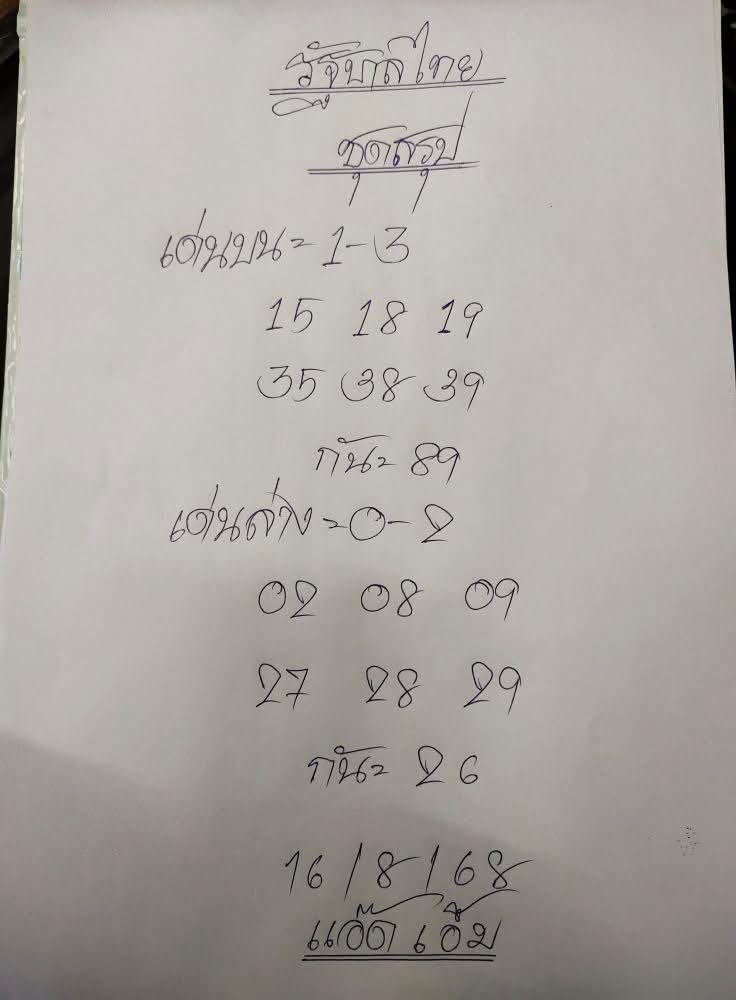 รัฐบาลไทย
ชุดสรุป
เด่นบน = 1-3
15 18 19
35 38 39
กัน = 89
เด่นล่าง = 0-2
02 08 09
27 28 29
กัน = 26
16/8/68
แอ๊ด เอ็ม